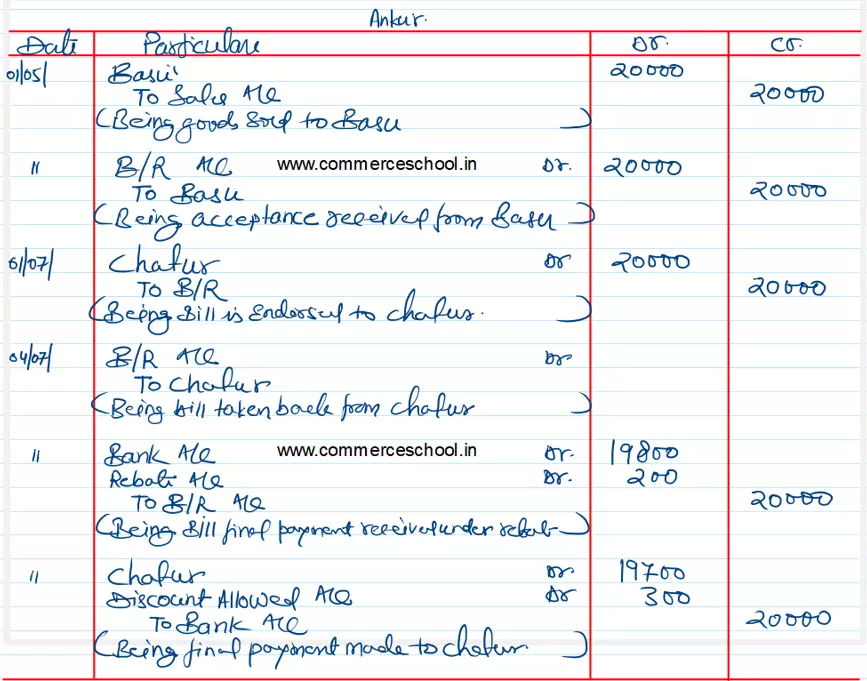 Ankur.
Date Particulars Dr. Cr.
01/05/ Basu 20000
To Sales A/C 20000
(Being goods Sold to Basu)
" B/R A/C www.commerceschool.in Dr. 20000
To Basu 20000
(Being acceptance received from Basu)
01/07/ Chatur Dr 20000
To B/R 20000
(Being Bill is Endorsed to Chatur.)
04/07/ B/R A/C Dr
To Chatur
(Being bill taken back from Chatur)
" Bank A/C www.commerceschool.in Dr. 19800
Rebate A/C Dr. 200
To B/R A/C 20000
(Being Bill final payment received under rebate)
" Chatur Dr 19700
Discount Allowed A/C Dr 300
To Bank A/C 20000
(Being final payment made to Chatur.)